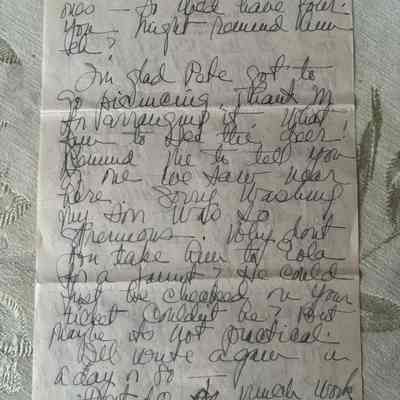 ones — so we'd have four.
You might remind him
eh?
I'm glad Pete got to
go picnicing. Thank M
for arranging it. What
fun to see the deer!
Remind me to tell you
of one I've seen near
here. Sorry washing
my son was so
strenuous. Why don't
you take him to Lola
for a jaunt? He could
just be checked on your
ticket couldn't he? But
maybe its not practical.
I'll write again in
a day or so —
much work